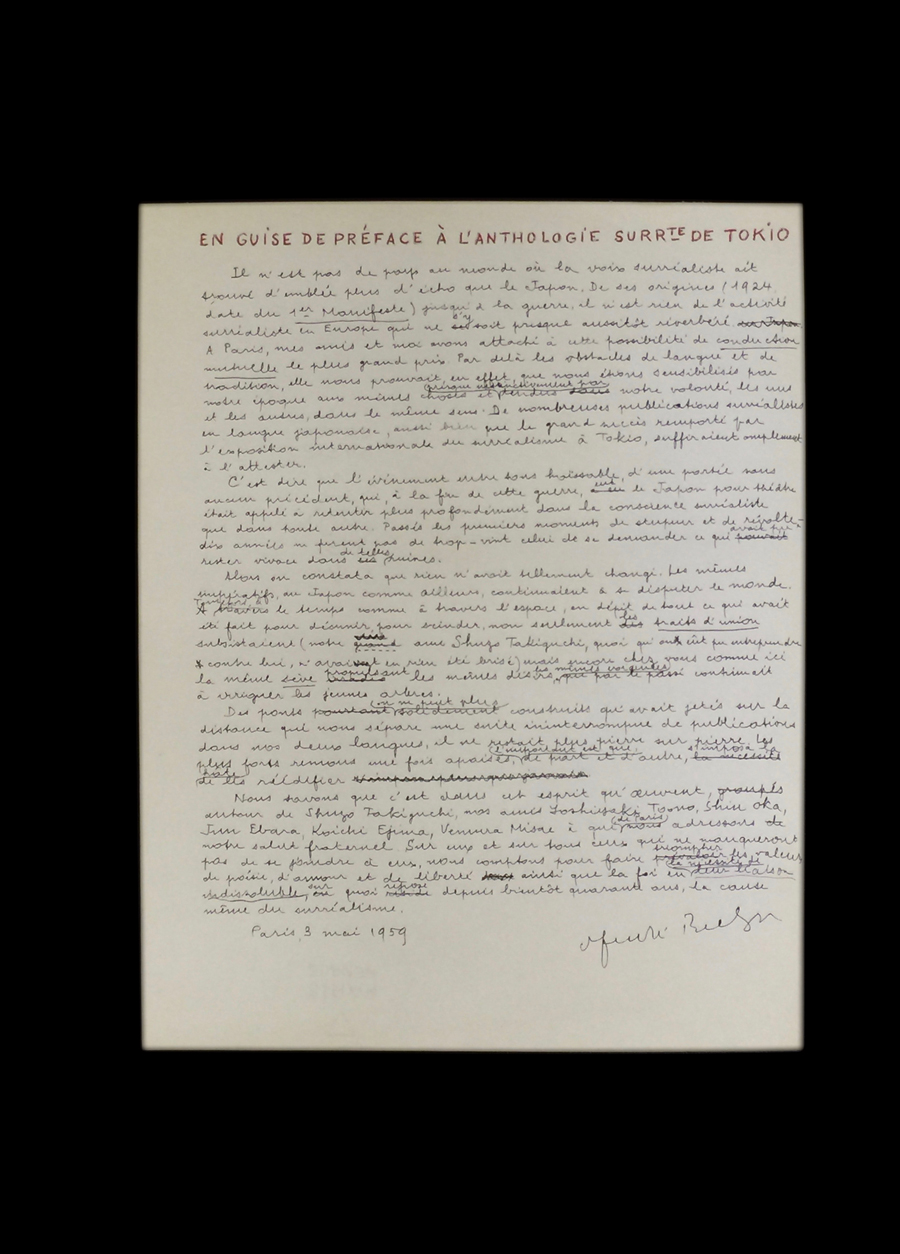 EN GUISE DE PRÉFACE À L'ANTHOLOGIE SURRTE DE TOKIO
Il n'est pas de pays au monde où la voix surréaliste ait
trouvé d'emblée plus d'écho que le Japon. De ses origines (1924
date du 1er Manifeste) jusqu'à la guerre, il n'est rien de l'activité
surréaliste en Europe qui ne s'y soit presque aussitôt réverbéré au Japon
A Paris, mes amis et moi avons attaché à cette possibilité de conduction
mutuelle le plus grand prix. Par delà les obstacles de langue et de
tradition, elle nous prouvait en effet que nous étions sensibilisés par
notre époque aux mêmes choses et presque instinctivement par tendus dans notre volonté, les uns
et les autres, dans le même sens. De nombreuses publications surréalistes
en langue japonaise, aussi bien que le grand succès remporté par
l'exposition internationale du surréalisme à Tokio, suffiraient amplement
à l'attester.
C'est dire que l'événement entre tous haïssable, d'une portée sans
aucun précédent, qui, à la fin de cette guerre, eut le Japon pour théâtre
était appelé à retentir plus profondément dans la conscience surréaliste
que dans toute autre. Passés les premiers moments de stupeur et de révolte –
dix années n'y furent pas de trop – vint celui de se demander ce qui avait pu pouvait
rester vivace dans de telles ruines.
Alors on constata que rien n'avait tellement changé. Les mêmes
impératifs, au Japon comme ailleurs, continuaient à se disputer le monde.
A travers le temps comme à travers l'espace, en dépit de tout ce qui avait
été fait pour désunir, pour scinder, non seulement les des traits d'union
subsistaient (notre grand ami Shuzo Takiguchi, quoi qui eût pu entreprendre
contre lui, n'avait en rien été brisé) mais encore chez vous comme ici
la même sève propulsant les mêmes désirs, mêmes qui par le passé continuait
à irriguer les jeunes arbres.
Des ponts on ne peut plus pourtant solidement construits qu'avait jetés sur la
distance qui nous sépare une suite ininterrompue de publications
dans nos deux langues, il ne restait plus pierre sur pierre. Les
plus forts remous une fois apaisés, l'important est que de part et d'autre, s'imposa la la nécessité
de les réédifier
Nous savons que c'est dans cet esprit qu'œuvrent, groupés
autour de Shuzo Takiguchi, nos amis Yoshiaki Tono, Shin Oka,
Jun Ebara, Koïchi Ejima, Yemura Misae à qui nous (de Paris) adressons de
notre salut fraternel. Sur eux et sur tous ceux qui ne manqueront
pas de se joindre à eux, nous comptons pour faire triompher prévaloir les valeurs
de poésie, d'amour et de liberté ainsi que la foi en la nécessité de leur liaison
indissoluble, sur en quoi repose réside depuis bientôt quarante ans, la cause
même du surréalisme.
Paris, 3 mai 1959
André Breton